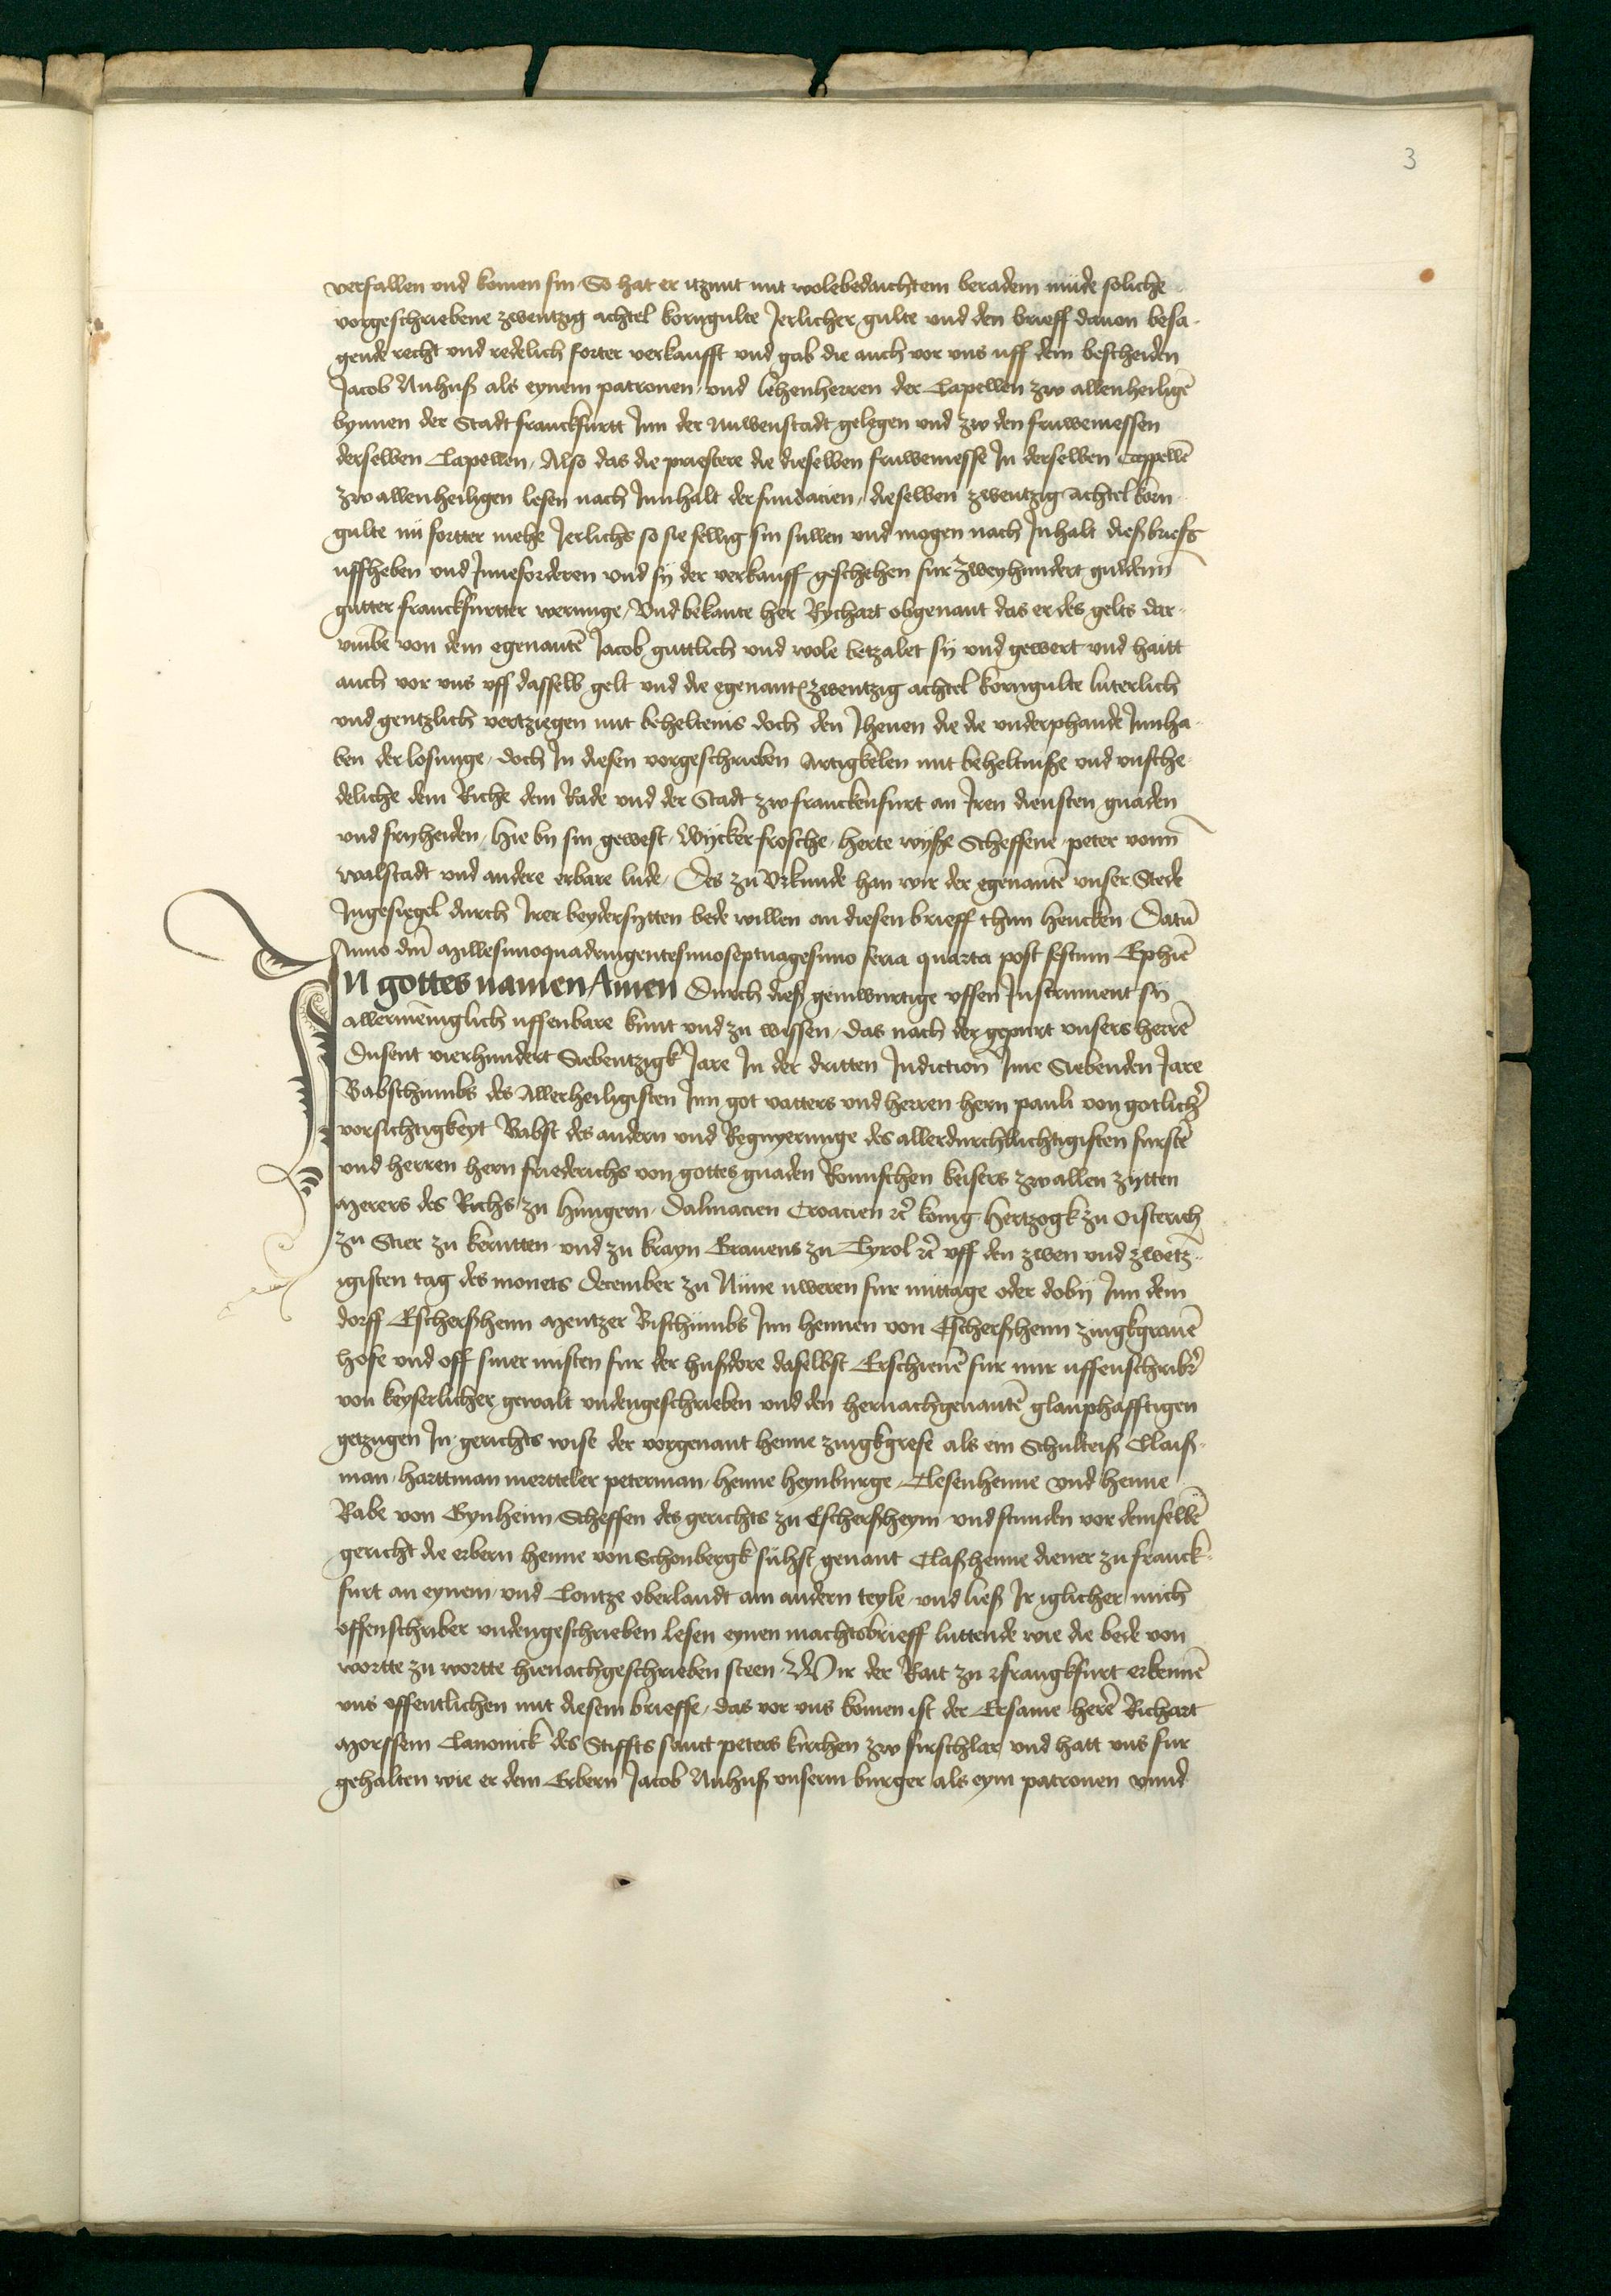 3
verfallen und komen sin So hat er itzunt mit wolebedaichtem beradem mude soliche
vorgeschriebene zwentzig achtel korngulte Jerlicher gulte und den brieff dauon besa-
gende recht und redelich forter verkaufft und gab die auch vor uns uff dem bescheiden
Jacob Nuhuß als eynem patronen und lehenherren der Capellen zw allenheiligē
bynnen der Stadt franckfurtt Jnn der Nuwenstadt gelegen und zw den fruwemessen
derselben Capellen, Also das die priestere die dieselben fruwemesse Jn derselben Cappellē
zw allenheiligen lesen nach Jnnhalt der fundacien, dieselben zwentzig achtel korn-
gulte nü fortter mehe Jerlichs so sie fellig sin sullen und mogen nach Jnhalt dieß briefs
uffheben und Jnneforderen und sÿ der verkauff geschehen fur zweyhundert guldenn
gutter franckfurtter werunge, Und bekante her Rychart obgenant das er des gelts dar-
vmbe von dem egenantē Jacob guttlich und wole betzalet sÿ und gewert und haitt
auch vor uns uff dasselb gelt und die egenant zwentzig achtel korngulte luterlich
und gentzlich vertziegen mit beheltenis doch den Jhenen die die underphande Jnnha-
ben der losunge, doch Jn diesen vorgeschrieben Artigkelen mit beheltniße und unsche-
deliche dem Riche dem Rade und der Stadt zw franckenfurt an Jren diensten gnaden
und fryheiden, Hie by sin gewest, Wÿcker frosche, herte wÿße Scheffene peter vonn
walstadt und andere erbare lude, Des zu Urkunde han wir der egenantē unser Stede
Jngesiegel durch Jrer beydersytten bede willen an diesen brieff thun hencken Datū
Anno dn̄i Millesimoquadringentesimoseptuagesimo feria quarta post festum Ephīe
JN gottes namen Amen Durch dieß geinwurtige uffen Jnstrument sÿ
allermeniglich uffenbare kunt und zu wissen, das nach der gepurt unsers herrē
Dusent vierhundert Siebentzigk Jare Jn der dritten Jndiction Jme Siebenden Jare
Babschumbs des Allerheiligisten Jnn got vatters und herren hern pauli von gotlicher
vorsichtigkeyt Babst des andern und Regnyerunge des allerdurchluchtigisten furstē
und herren hern friederichs von gottes gnaden Romischen keisers zw allen zytten
Merers des Richs zu Hungern, Dalmacien Croacien ꝛc̄ konig, hertzogk zu Oisterich
zu Stier zu kerntten und zu krayn Grauens zu Tyrol ꝛc̄ uff den zwen und zwētz-
igisten tag des monets December zu Nüne uweren fur mittage oder dobÿ Jnn dem
dorff Escherßhenn Mentzer Bischumbs Jnn Hennen von Escherßhenn zingkgrauē
hofe und off siner misten fur der hußdore daselbst Erschienē fur mir uffenschriber
von keyserlicher gewalt undengeschrieben und den hernachgenantē glauphafftigen
getzugen Jn gerichts wise der vorgenant henne zingkgrefe als ein Schulteiß Claiß-
man, harttman mertteler peterman, henne heynburge, Clesenhenne und henne
Rabe von Gynheim Scheffen des gerichts zu Escherßheym und stunden vor demselbē
gericht die erbern henne von Schonbergk sußt genant Claßhenne diener zu franck-
furt an eynem, und Contze oberlandt am andern teyle, und ließ Jr iglicher mich
offenschriber undengeschrieben lesen eynen machtsbrieff luttende wie die bede von
wortte zu wortte hienachgeschrieben steen. Wir der Rait zu frangkfurt erkennē
uns offentlichen mit diesem brieffe, das vor uns komen ist der Ersame herē Richart
Morssem Canonick des Stiffts sanct peters kirchen zw fritschlar und hatt uns fur-
gehalten wie er dem Erbern Jacob Nuhuß unserm burger als eym patronen vnnd